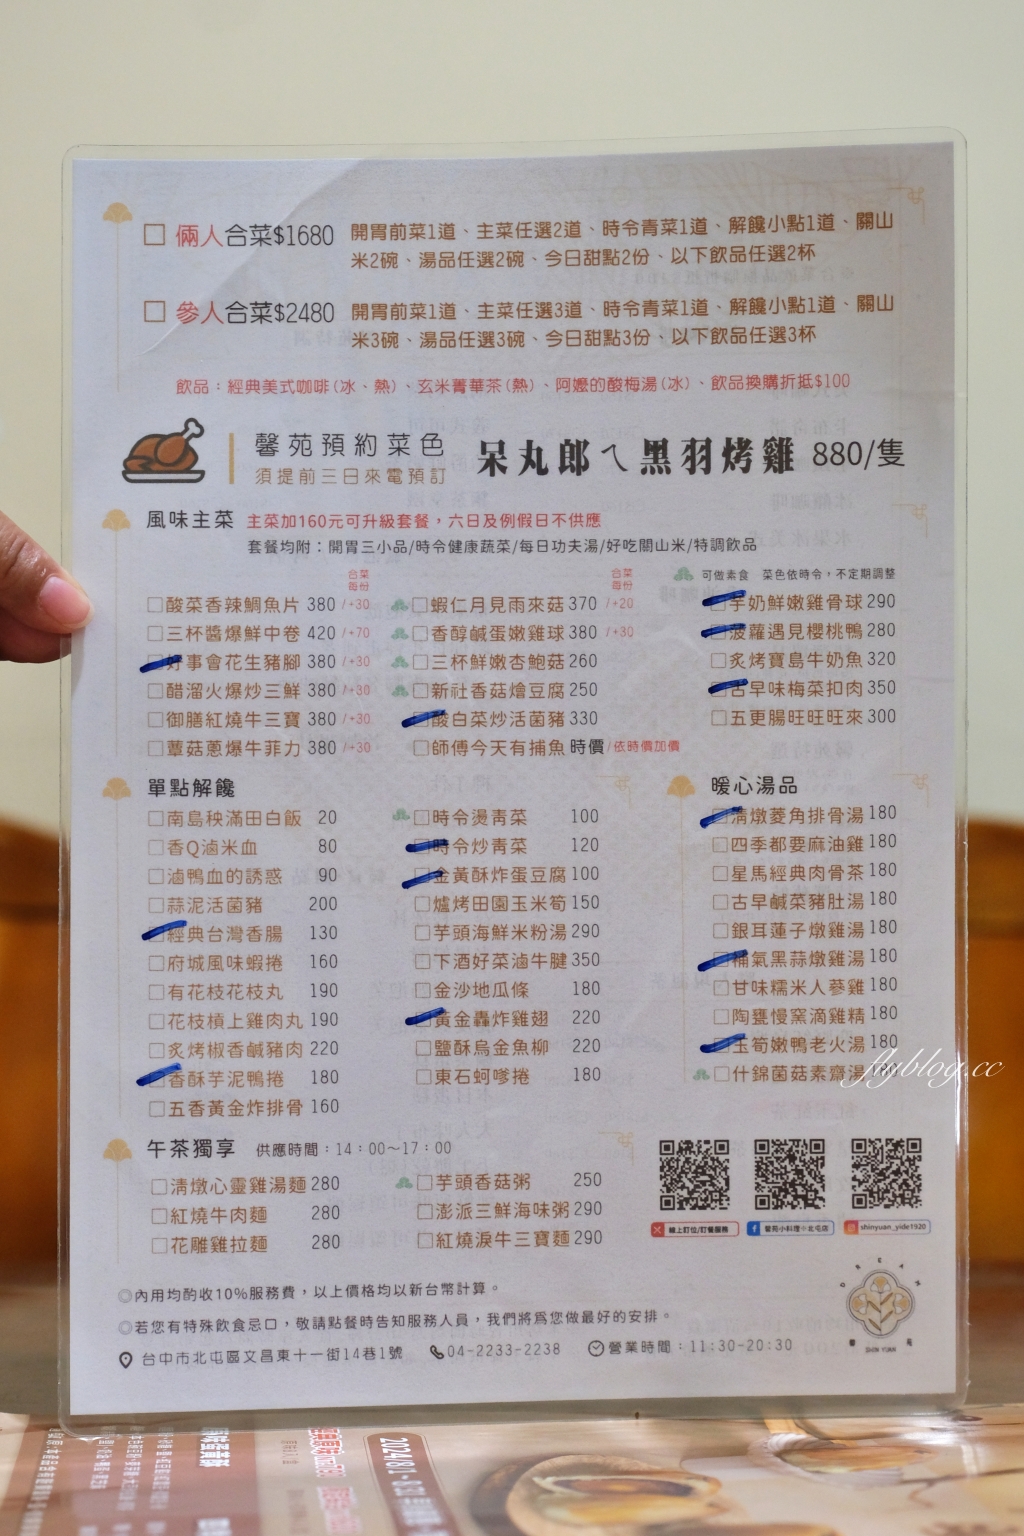 □ 倆人合菜$1680 開胃前菜1道、主菜任選2道、時令青菜1道、解饞小點1道、關山
米2碗、湯品任選2碗、今日甜點2份、以下飲品任選2杯
□ 參人合菜$2480 開胃前菜1道、主菜任選3道、時令青菜1道、解饞小點1道、關山
米3碗、湯品任選3碗、今日甜點3份、以下飲品任選3杯
飲品：經典美式咖啡(冰、熱)、玄米菁華茶(熱)、阿嬤的酸梅湯(冰)、飲品換購折抵$100
馨苑預約菜色
須提前三日來電預訂
呆丸郎ㄟ黑羽烤雞 880/隻
風味主菜 主菜加160元可升級套餐，六日及例假日不供應
套餐均附：開胃三小品/時令健康蔬菜/每日功夫湯/好吃關山米/特調飲品
合菜
每份
□酸菜香辣鯛魚片 380 /+30
□三杯醬爆鮮中卷 420 /+70
好事會花生豬腳 380 /+30
□醋溜火爆炒三鮮 380 /+30
□御膳紅燒牛三寶 380 /+30
□蕈菇蔥爆牛菲力 380 /+30
合菜
每份
□蝦仁月見雨來菇 370 /+20
□香醇鹹蛋嫩雞球 380 /+30
□三杯鮮嫩杏鮑菇 260
□新社香菇燴豆腐 250
酸白菜炒活菌豬 330
□師傅今天有捕魚 時價 /依時價加價
可做素食 菜色依時令，不定期調整
芋奶鮮嫩雞骨球 290
菠蘿遇見櫻桃鴨 280
□炙烤寶島牛奶魚 320
古早味梅菜扣肉 350
□五更腸旺旺旺來 300
單點解饞
□南島秧滿田白飯 20
□香Q滷米血 80
□滷鴨血的誘惑 90
□蒜泥活菌豬 200
經典台灣香腸 130
□府城風味蝦捲 160
□有花枝花枝丸 190
□花枝槓上雞肉丸 190
□炙烤椒香鹹豬肉 220
香酥芋泥鴨捲 180
□五香黃金炸排骨 160
□時令燙青菜 100
時令炒青菜 120
金黃酥炸蛋豆腐 100
□爐烤田園玉米筍 150
□芋頭海鮮米粉湯 290
□下酒好菜滷牛腱 350
□金沙地瓜條 180
黃金轟炸雞翅 220
□鹽酥烏金魚柳 220
□東石蚵嗲捲 180
暖心湯品
清燉菱角排骨湯 180
□四季都要麻油雞 180
□星馬經典肉骨茶 180
□古早鹹菜豬肚湯 180
□銀耳蓮子燉雞湯 180
補氣黑蒜燉雞湯 180
□甘味糯米人蔘雞 180
□陶甕慢窯滴雞精 180
玉筍嫩鴨老火湯 180
□什錦菌菇素齋湯 180
flyblog.cc
午茶獨享 供應時間：14：00～17：00
□清燉心靈雞湯麵 280
□紅燒牛肉麵 280
□花雕雞拉麵 280
□芋頭香菇粥 250
□澎派三鮮海味粥 290
□紅燒淚牛三寶麵 290
線上訂位/訂餐服務
馨苑小料理＊北屯店
shinyuan_yide1920
◎內用均酌收10%服務費，以上價格均以新台幣計算。
◎若您有特殊飲食忌口，敬請點餐時告知服務人員，我們將為您做最好的安排。
台中市北屯區文昌東十一街14巷1號 04-2233-2238 營業時間：11:30-20:30
馨 SHIN YUAN 苑